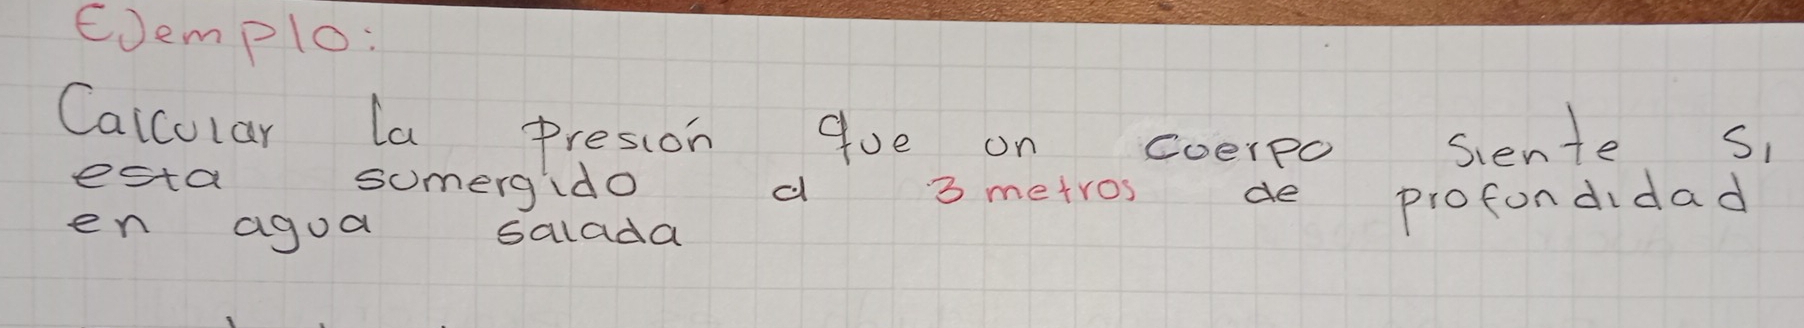 Ejemplo:
Calcular la presión que un cuerpo siente si
esta sumergido a 3 metros de profundidad
en agua salada